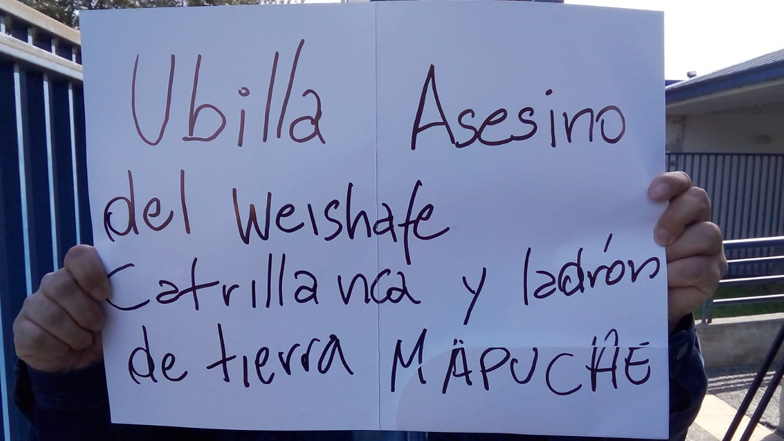 Ubilla Asesino
del Weishafe
Catrillanca y ladrón
de tierra MAPUCHE